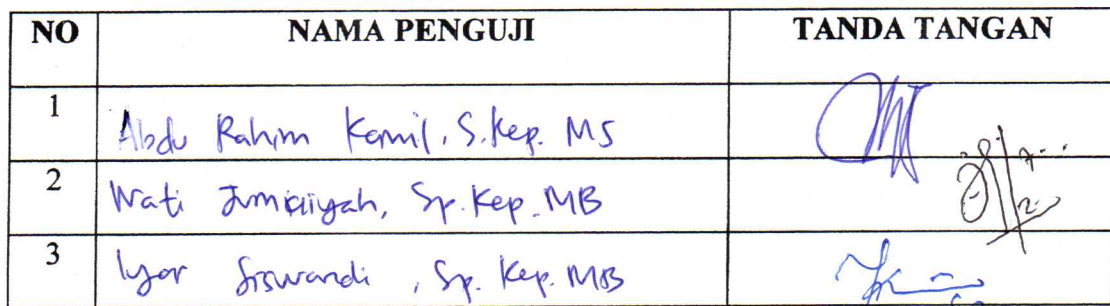 NO NAMA PENGUJI TANDA TANGAN
1 Abdu Rahim Kamil, S.Kep. MS
2 Wati Jumaiyah, Sp.Kep.MB
3 Iyar Siswandi, Sp. Kep. MB